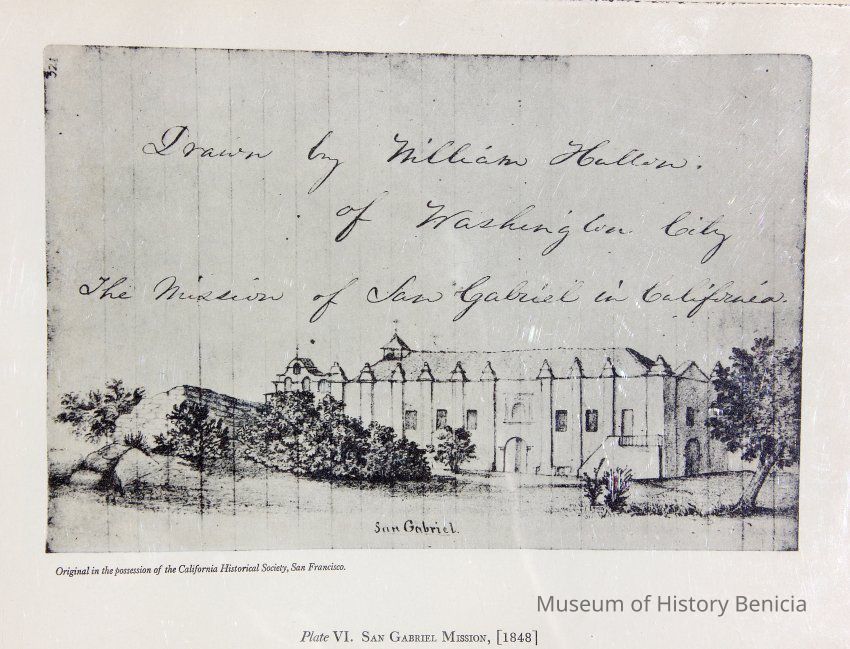 321
Drawn by William Hutton.
of Washington City
The Mission of San Gabriel in California.
San Gabriel.
Original in the possession of the California Historical Society, San Francisco.
Museum of History Benicia
Plate VI. San Gabriel Mission, [1848]